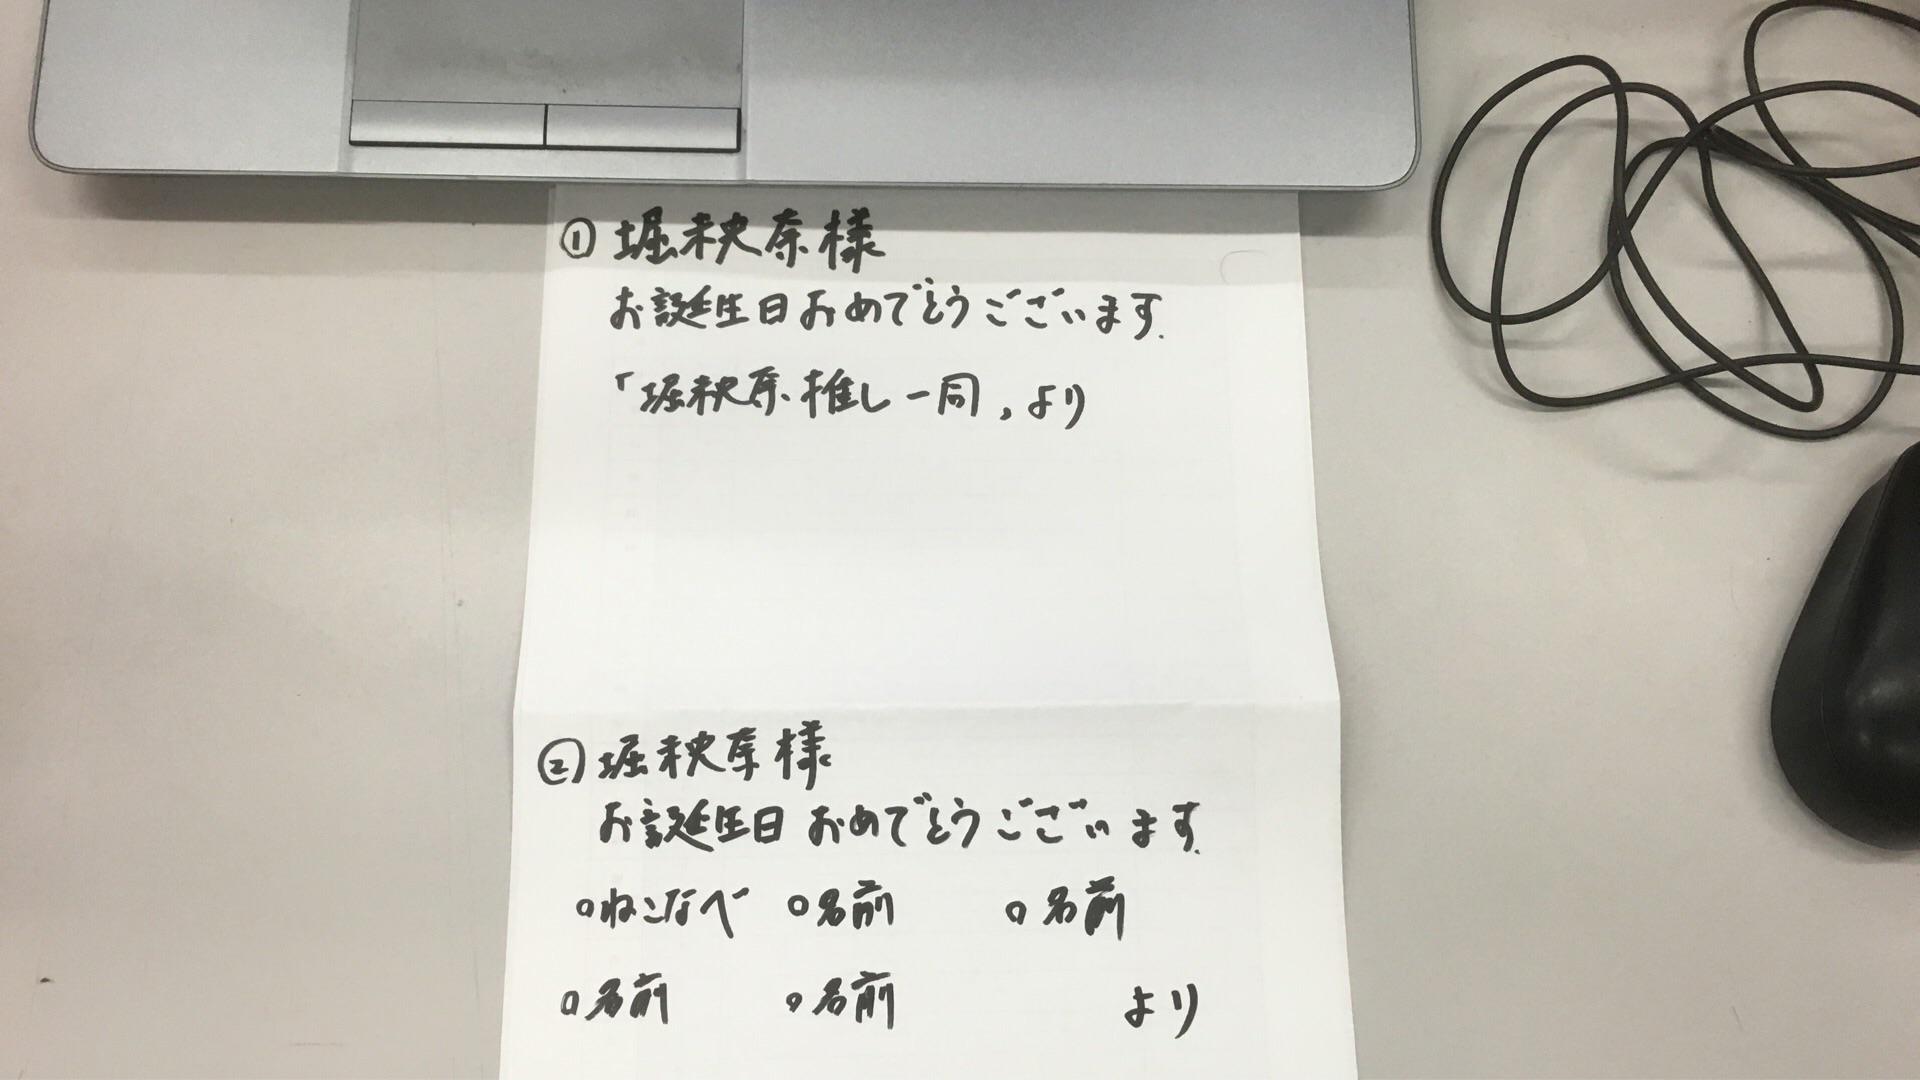 ① 堀秧奈様
お誕生日おめでとうございます.
「堀秧奈推し一同」より
② 堀秧奈様
お誕生日おめでとうございます.
○ねこなべ ○名前 ○名前
○名前 ○名前 より